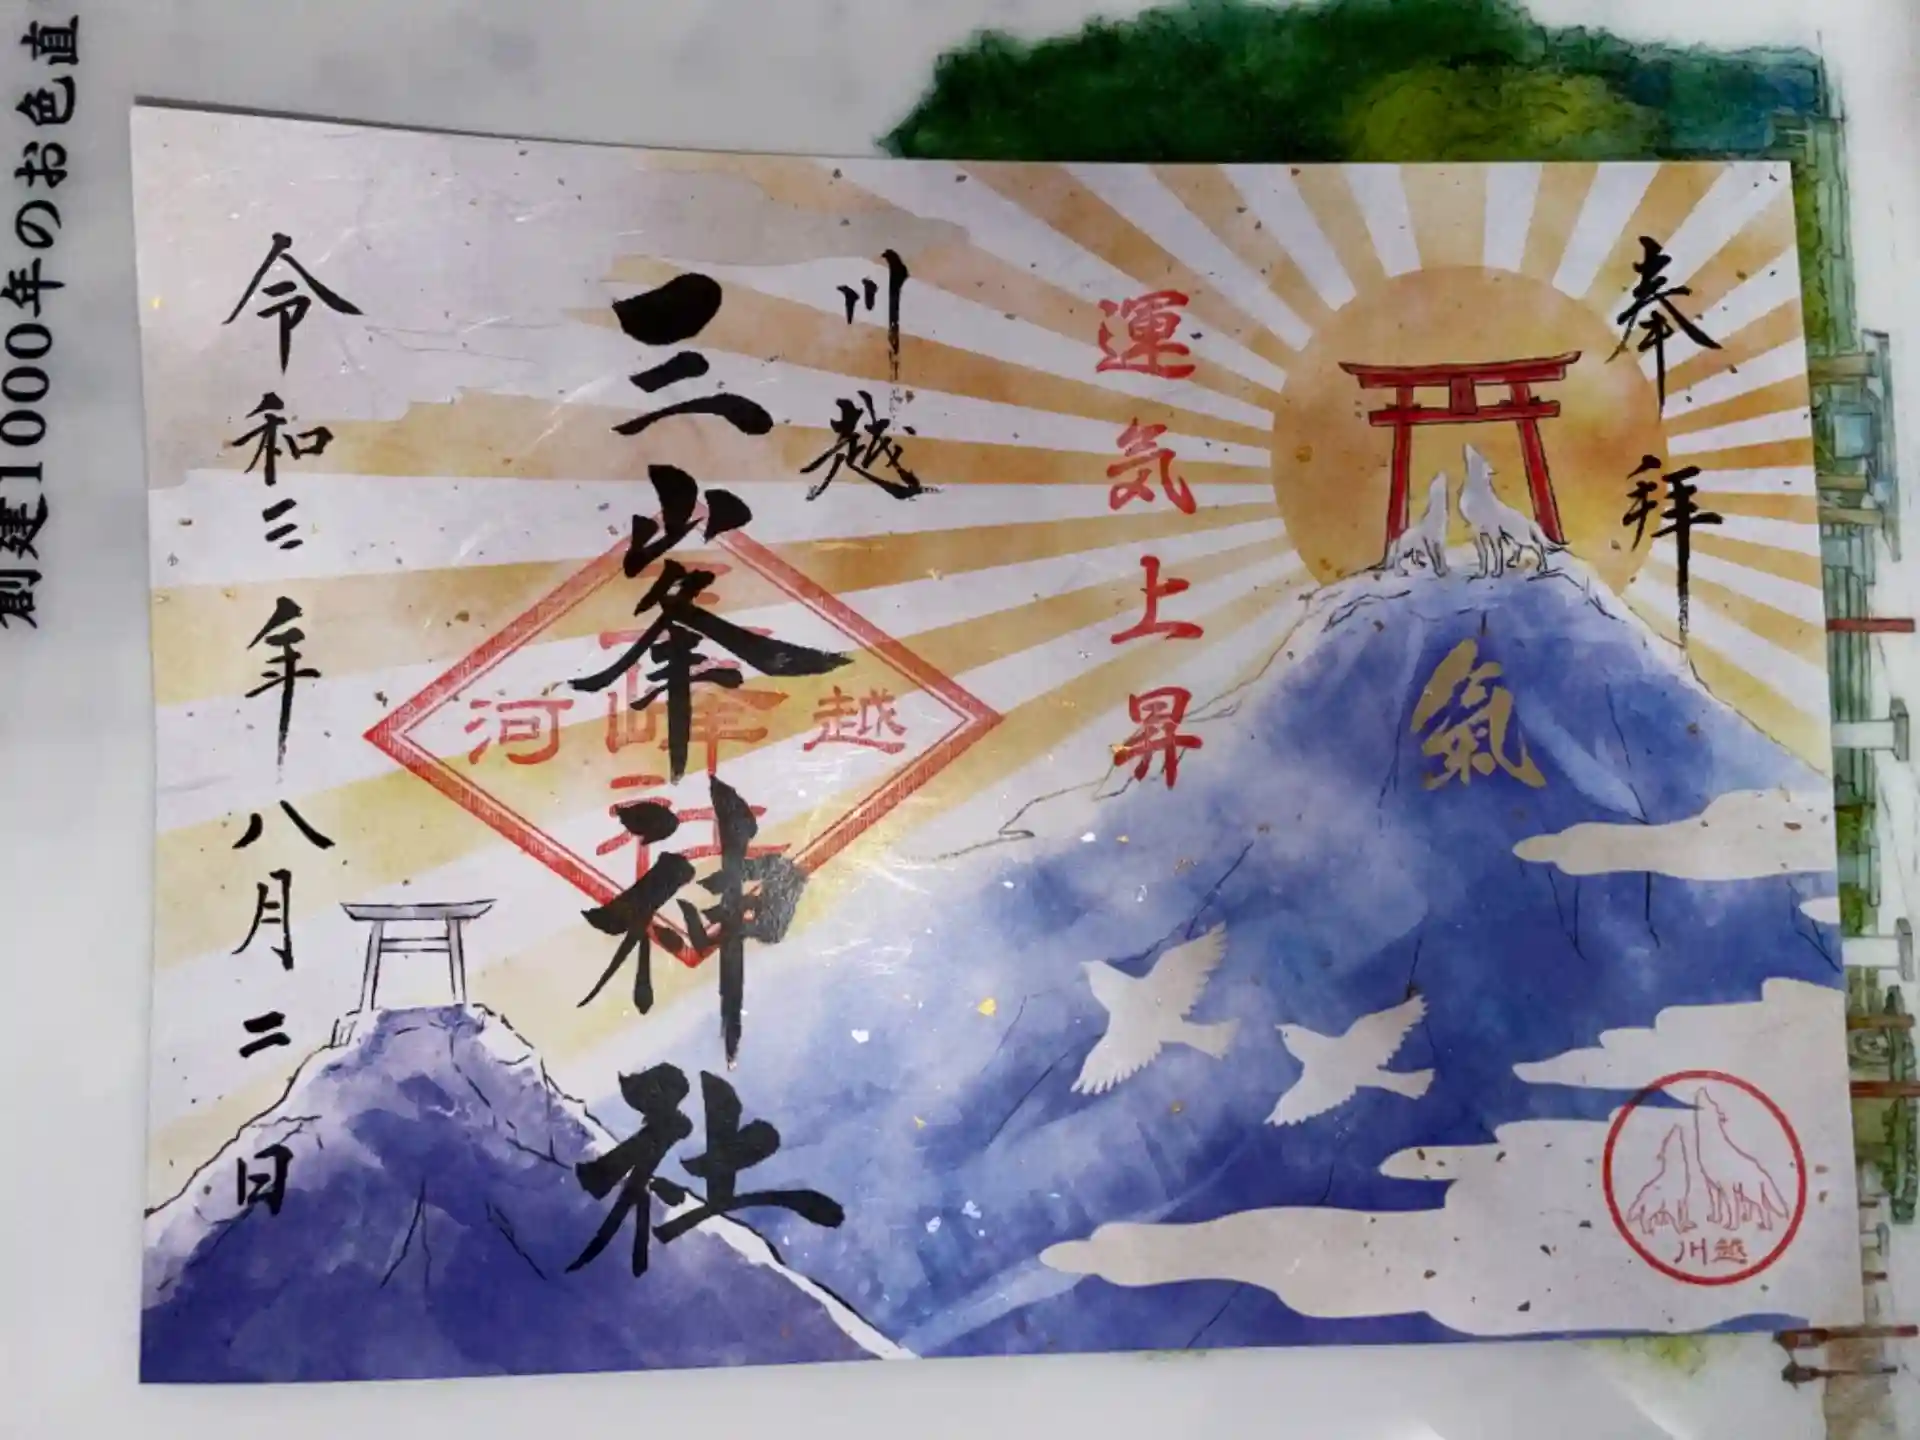 奉拝
運気上昇
氣
川越
三峯神社
河越
三峰社
令和三年八月二日
川越
創建1000年のお色直